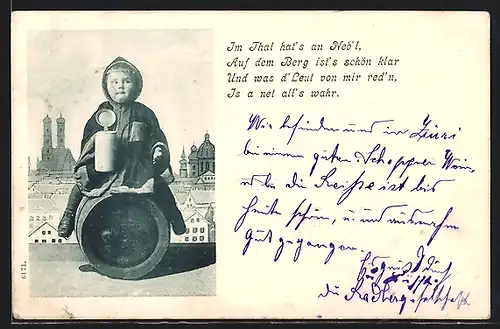 Im Thal hat's an Neb'l,
Auf dem Berg ist's schön klar
Und was d'Leut von mir red'n,
Is a net all's wahr.
Wir befinden uns in
bei einem guten Schoppen Wein,
die Reise ist bis
heute schön, u. uns
gut gegangen.
Es grüßt dich
die
6171.